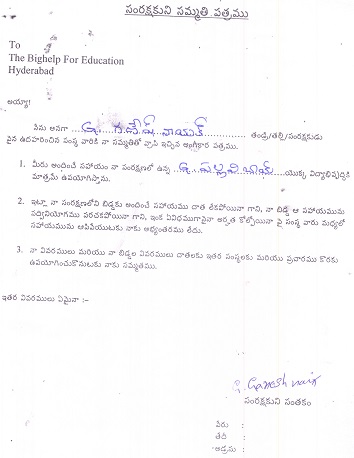 సంరక్షకుని సమ్మతి పత్రము
To
The Bighelp For Education
Hyderabad
అయ్యా!
నేను అనగా ...ఇ. గణేష్ నాయక్............... తండ్రి/తల్లి/సంరక్షకుడు
పైన ఉదహరించిన సంస్థ వారికి నా సమ్మతితో వ్రాసి ఇచ్చిన అంగీకార పత్రము.
1. మీరు అందించే సహాయం నా సంరక్షణలో ఉన్న ...ఇ. పల్లవి బాయి...యొక్క విద్యాభివృద్ధికి
మాత్రమే ఉపయోగిస్తాను.
2. ఇట్లా నా సంరక్షణలోని బిడ్డకు అందించే సహాయము దాత లేకపోయినా గాని, నా బిడ్డ ఆ సహాయమును
సద్వినియోగము పరచకపోయినా గాని, ఇంక ఏవిధముగానైనా అర్హత కోల్పోయినా పై సంస్థ వారు మధ్యలో
సహాయమును ఆపివేయుటకు నాకు అభ్యంతరము లేదు.
3. నా వివరములు మరియు నా బిడ్డల వివరములు దాతలకు ఇతర సంస్థలకు మరియు ప్రచారము కొరకు
ఉపయోగించుకొనుటకు నాకు సమ్మతము.
ఇతర వివరములు ఏమైనా :-
Ganesh naik
సంరక్షకుని సంతకం
పేరు :
తేది :
అడ్రసు :